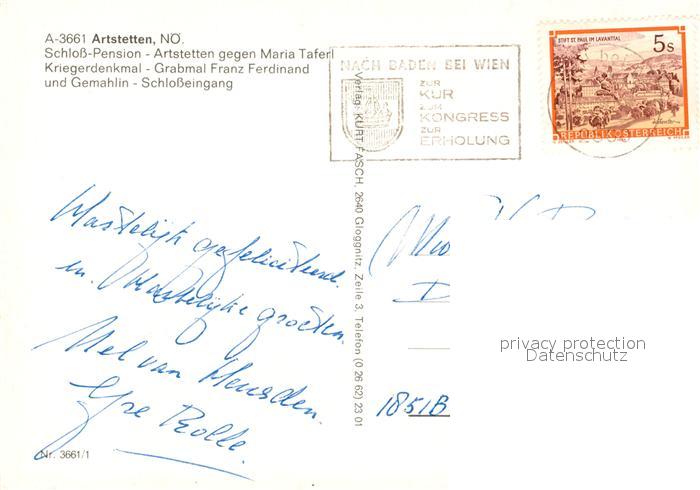 A-3661 Artstetten, NÖ.
Schloß-Pension - Artstetten gegen Maria Taferl
Kriegerdenkmal - Grabmal Franz Ferdinand
und Gemahlin - Schloßeingang
NACH BADEN BEI WIEN
ZUR
KUR
ZUM
KONGRESS
ZUR
ERHOLUNG
STIFT ST. PAUL IM LAVANTTAL
5s
REPUBLIK ÖSTERREICH
Verlag: KURT FASCH, 2640 Gloggnitz, Zeile 3, Telefon (0 26 62) 23 01
Hartelijk gefeliciteerd
en Hartelijke groeten.
Nel van Heusden.
1851B
privacy protection
Datenschutz
Nr. 3661/1